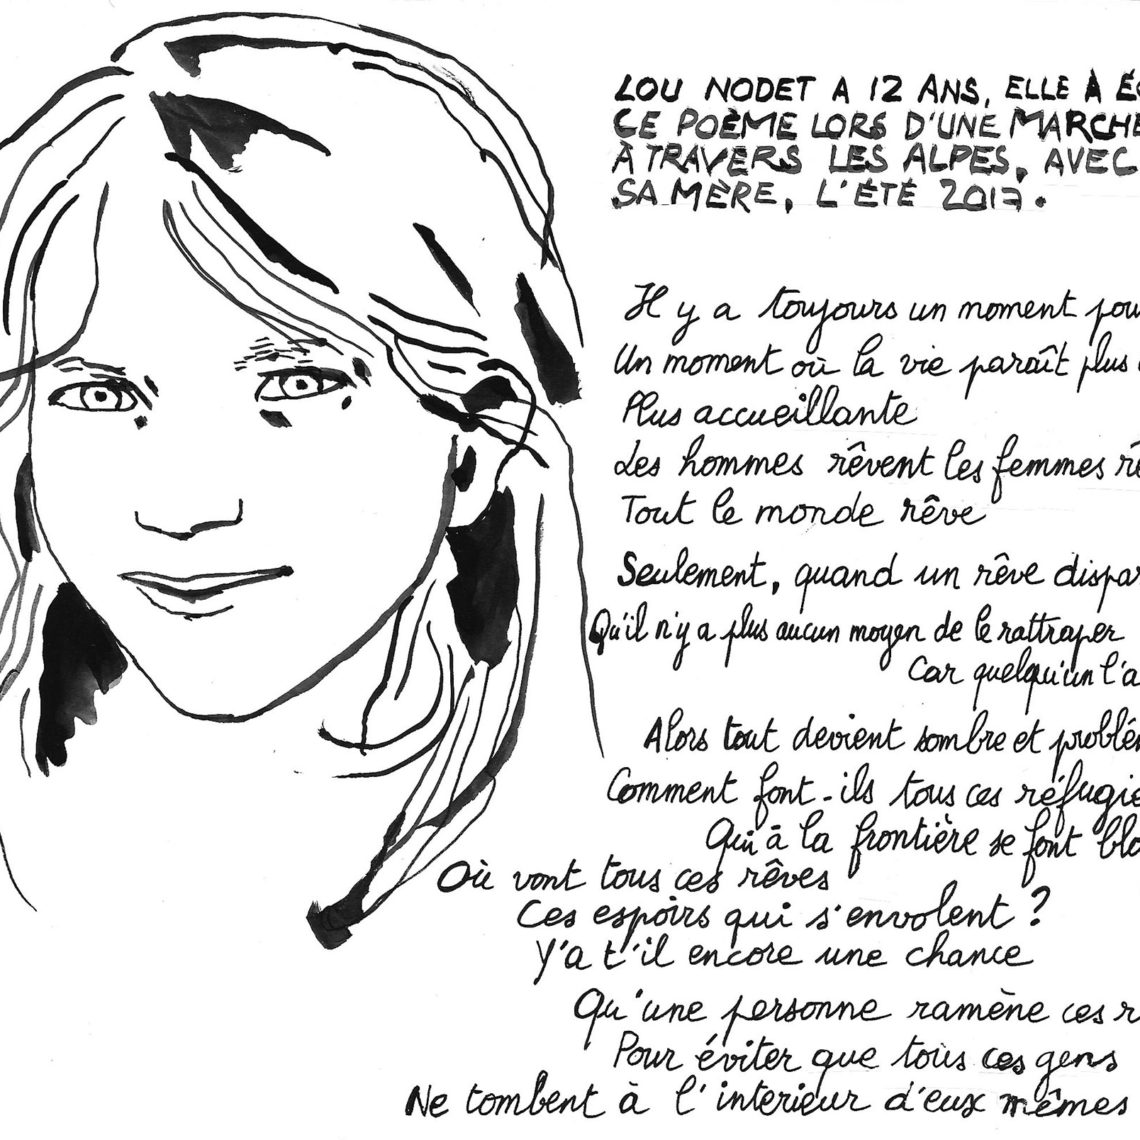 LOU NODET A 12 ANS, ELLE À ÉC
CE POÈME LORS D'UNE MARCHE
À TRAVERS LES ALPES, AVEC
SA MÈRE, L'ÉTÉ 2017.
Il y a toujours un moment pou
Un moment où la vie paraît plus
Plus accueillante
Les hommes rêvent les femmes rê
Tout le monde rêve
Seulement, quand un rêve dispar
Qu'il n'y a plus aucun moyen de le rattraper
Car quelqu'un l'a
Alors tout devient sombre et problém
Comment font-ils tous ces réfugié
Qui à la frontière se font blo
Où vont tous ces rêves
Ces espoirs qui s'envolent ?
Y'a t'il encore une chance
Qu'une personne ramène ces r
Pour éviter que tous ces gens
Ne tombent à l'interieur d'eux mêmes